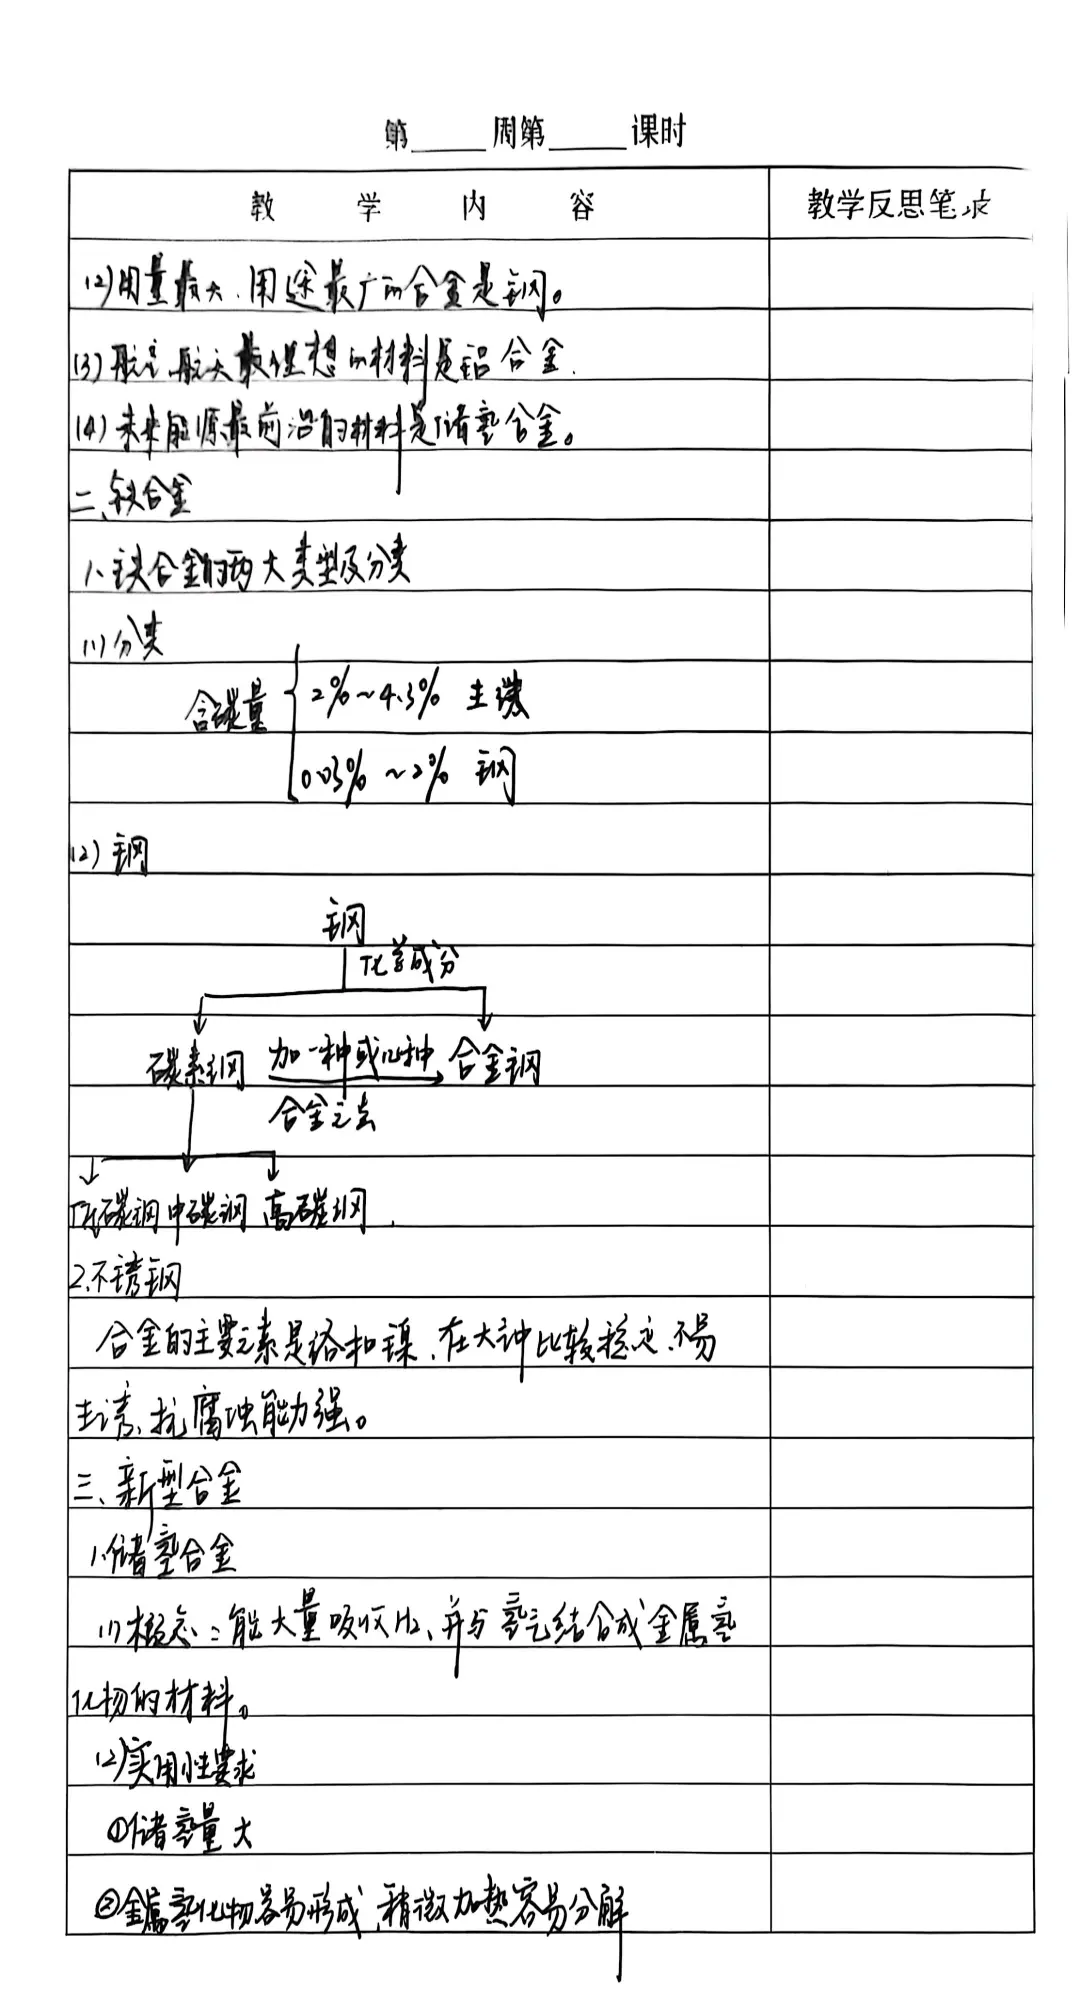 第____周第____课时
教 学 内 容 教学反思笔录
(2)用量最大、用途最广的合金是钢。
(3)航空、航天最理想的材料是铝合金.
(4)未来能源最前沿的材料是储氢合金。
二、铁合金
1、铁合金的两大类型及分类
(1)分类
含碳量 2%~4.3% 生铁
0.03%~2% 钢
(2)钢
钢
化学成分
碳素钢 加一种或几种 合金钢
合金元素
低碳钢 中碳钢 高碳钢.
2.不锈钢
合金的主要元素是铬和镍、在大气中比较稳定、不易
生锈、抗腐蚀能力强。
三、新型合金
1.储氢合金
(1)概念:能大量吸收H₂、并与氢气结合成金属氢
化物的材料。
(2)实用性要求
①储氢量大
②金属氢化物容易形成、稍微加热容易分解